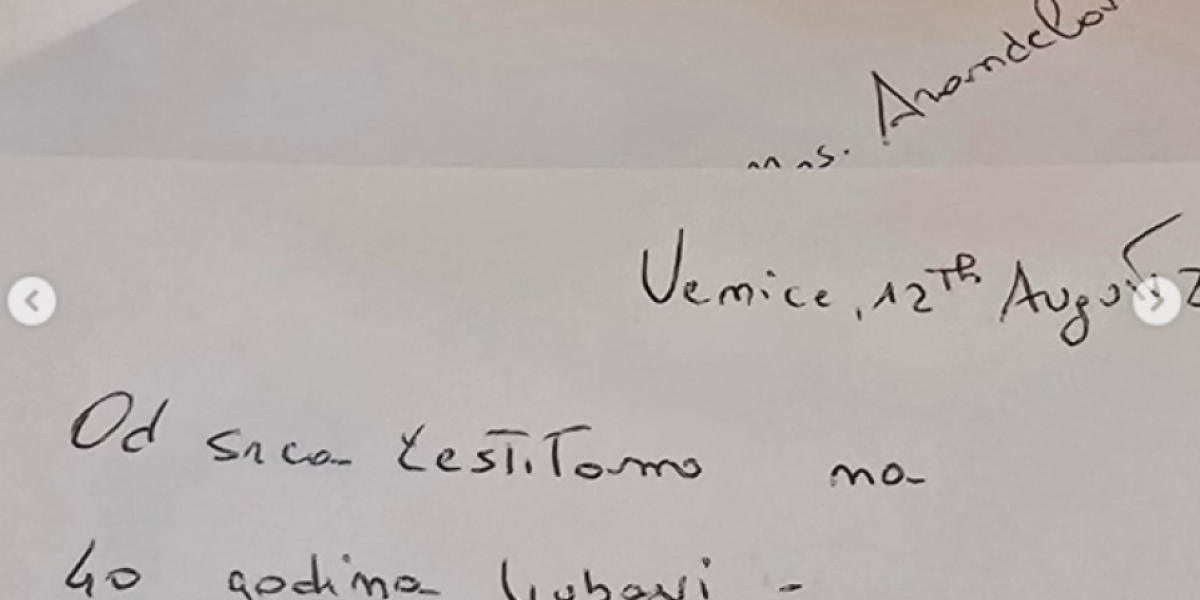 Arandelov
Venice, 12th August
Od srca čestitamo na
40 godina ljubavi -